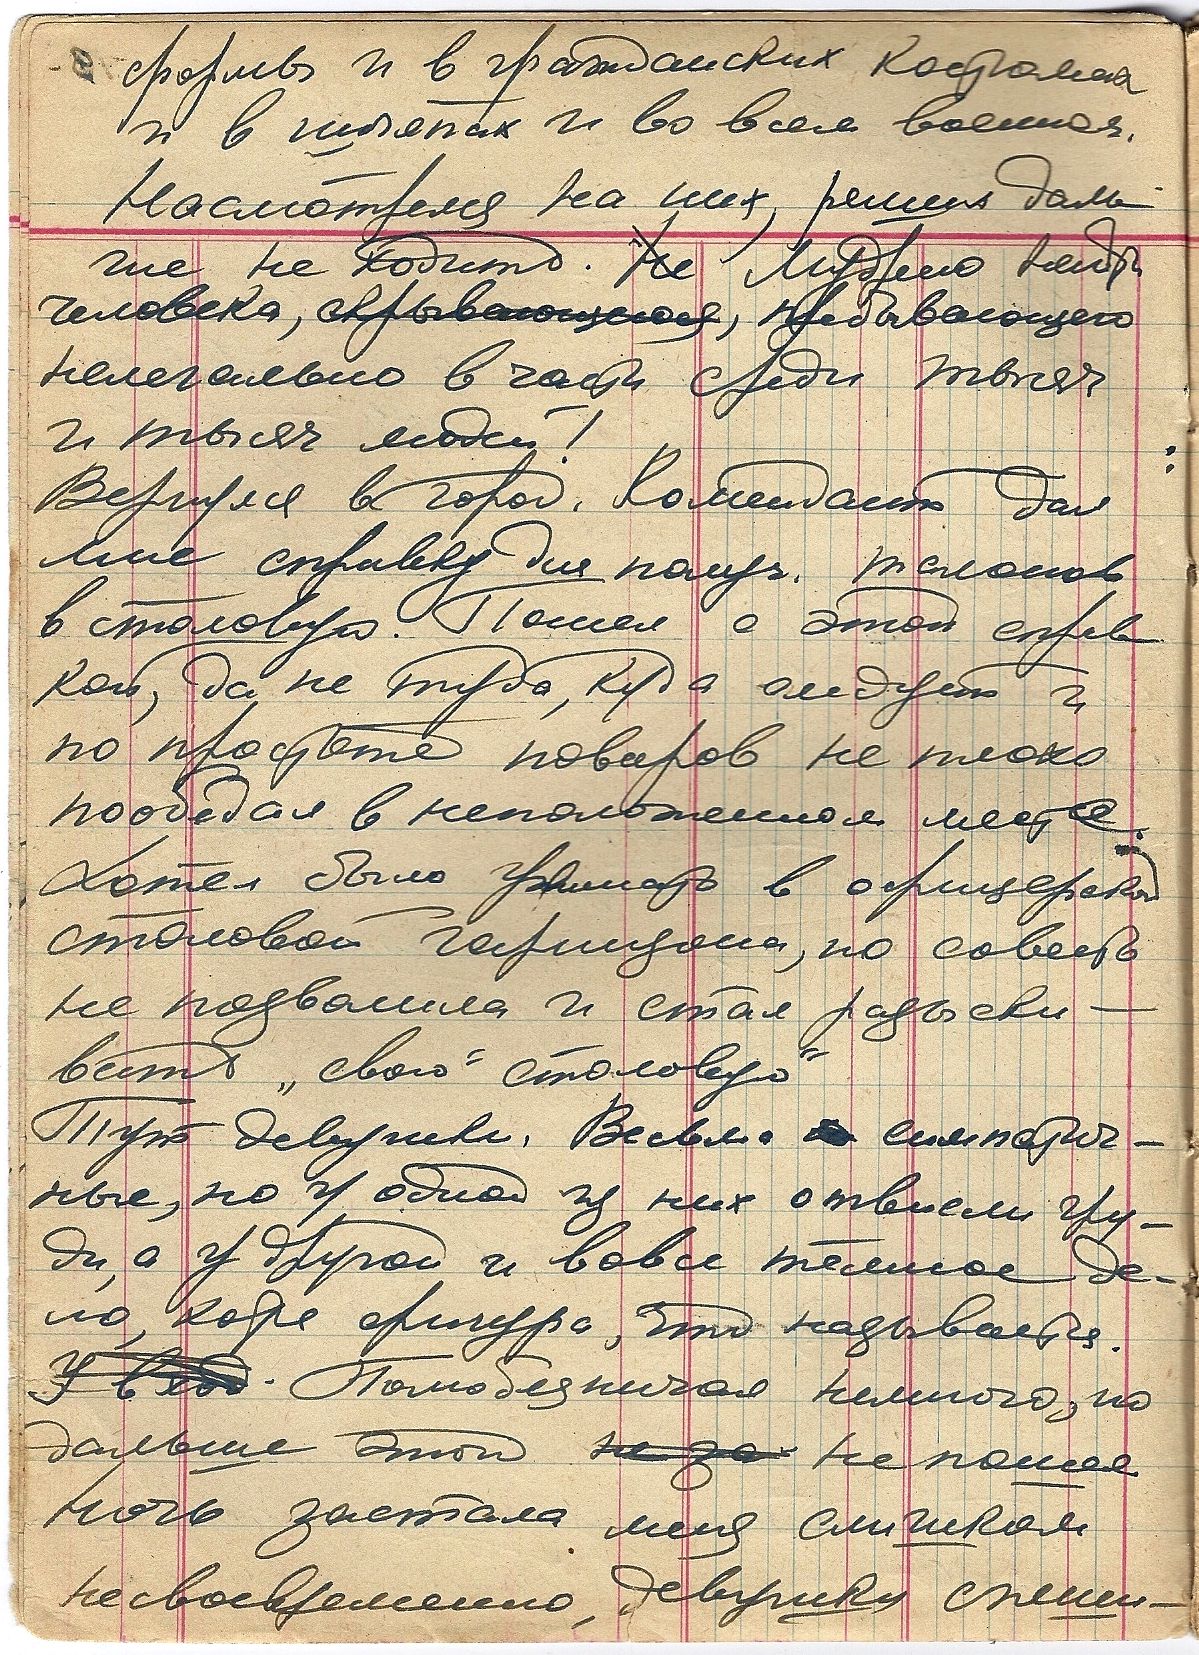 формы и в гражданских костюмах
и в шляпах и во всем военном.
Насмотрелся на них, решил даль-
ше не ходить. Не Мудрено найти
человека, скрывающегося, пребывающего
нелегально в части среди тысяч
и тысяч людей!
Вернулся в город. Комендант дал
мне справку для получ. талонов
в столовую. Пошел с этой справ
кой, да не туда, куда следует и
по простоте поваров не плохо
пообедал в неположенном месте.
Хотел было ужинать в офицерской
столовой гарнизона, но совесть
не позволила и стал разыски-
вать „свою" столовую"
Тут девушки. Весьма симпатич-
ные, но у одной из них отвисли гру-
ди, а у другой и вовсе тёмное де-
ло, кофе фигура, что называется.
У вхо. Полюбезничал немного, но
дальше этого не за не пошел
ночь застала меня слишком
несвоевременно, девушки спеши-